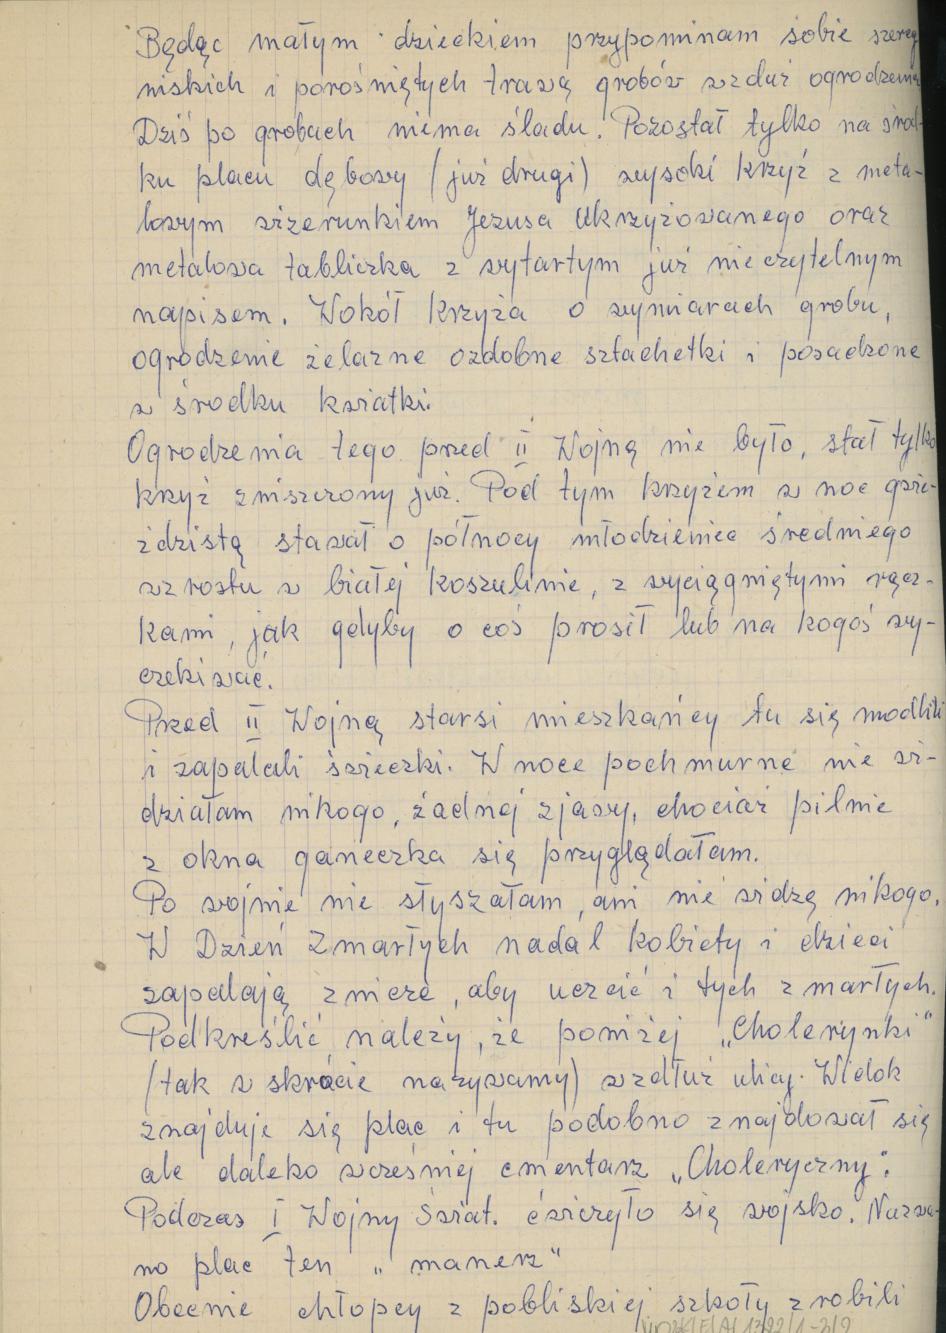 Będąc małym dzieckiem przypominam sobie szereg
niskich i porośniętych trawą grobów wzduż ogrodzenia
Dziś po grobach niema śladu. Pozostał tylko na środ-
ku placu dębowy (już drugi) wysoki krzyż z meta-
lowym wizerunkiem Jezusa Ukrzyżowanego oraz
metalowa tabliczka z wytartym już nieczytelnym
napisem. Wokół krzyża o wymiarach grobu,
ogrodzenie żelazne ozdobne sztachetki i posadzone
w środku kwiatki.
Ogrodzenia tego przed II Wojną nie było, stał tylko
krzyż zniszczony już. Pod tym krzyżem w noc gwie-
żdzistą stawał o północy młodzieniec średniego
wzrostu w białej koszulinie, z wyciągniętymi rącz-
kami, jak gdyby o coś prosił lub na kogoś wy-
czekiwać.
Przed II Wojną starsi mieszkańcy tu się modlili
i zapalali świeczki. W noce pochmurne nie wi-
działam nikogo, żadnej zjawy, chociaż pilnie
z okna ganeczka się przyglądałam.
Po wojnie nie słyszałam, ani nie widzę nikogo.
W Dzień Zmarłych nadal kobiety i dzieci
zapalają znicze, aby uczcić i tych zmarłych.
Podkreślić należy, że poniżej „Cholerynki"
(tak w skrócie nazywamy) wzdłuż ulicy. Widok
znajduje się plac i tu podobno znajdował się
ale daleko wcześniej cmentarz „Choleryczny".
Podczas I Wojny Świat. ćwiczyło się wojsko. Nazwa-
no plac ten „manerz"
Obecnie chłopcy z pobliskiej szkoły zrobili